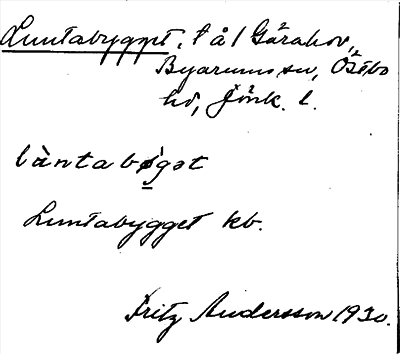 Luntabygget, t å l Gärahov,
Byarums sn, Östbo
hd, Jönk. l.
làntabø̀gat
Luntabygget kb.
Fritz Andersson 1930.